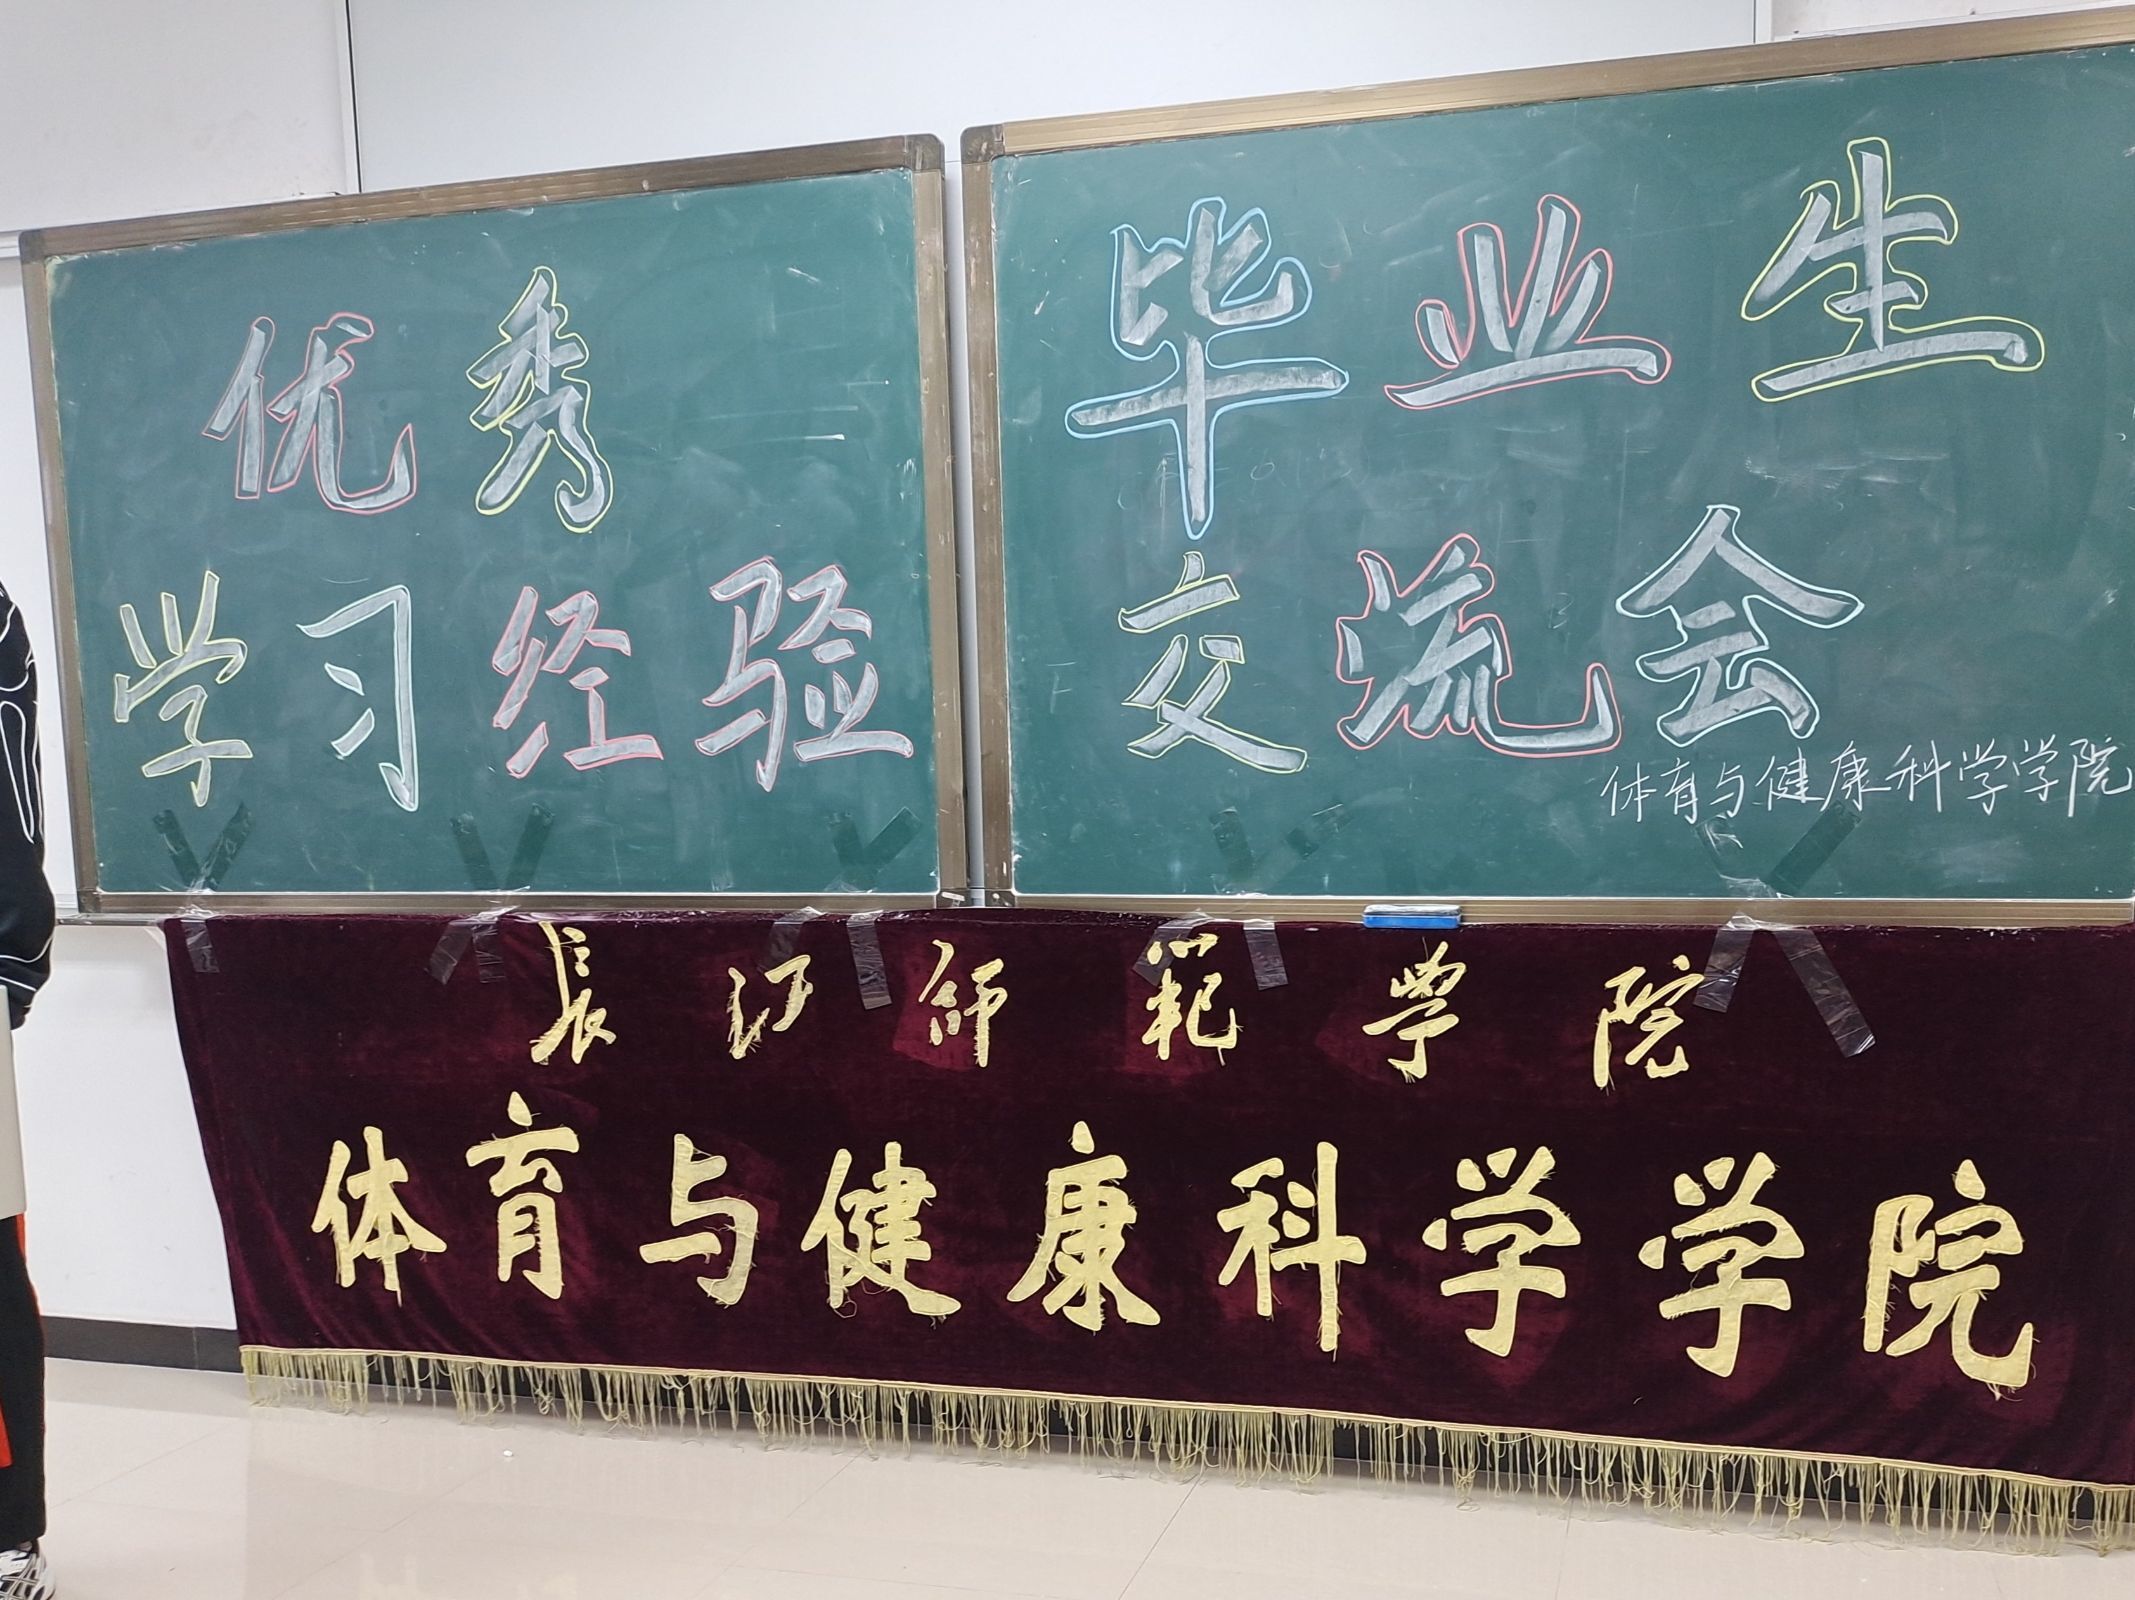 优秀毕业生
学习经验交流会
体育与健康科学学院
長江师範學院
体育与健康科学学院